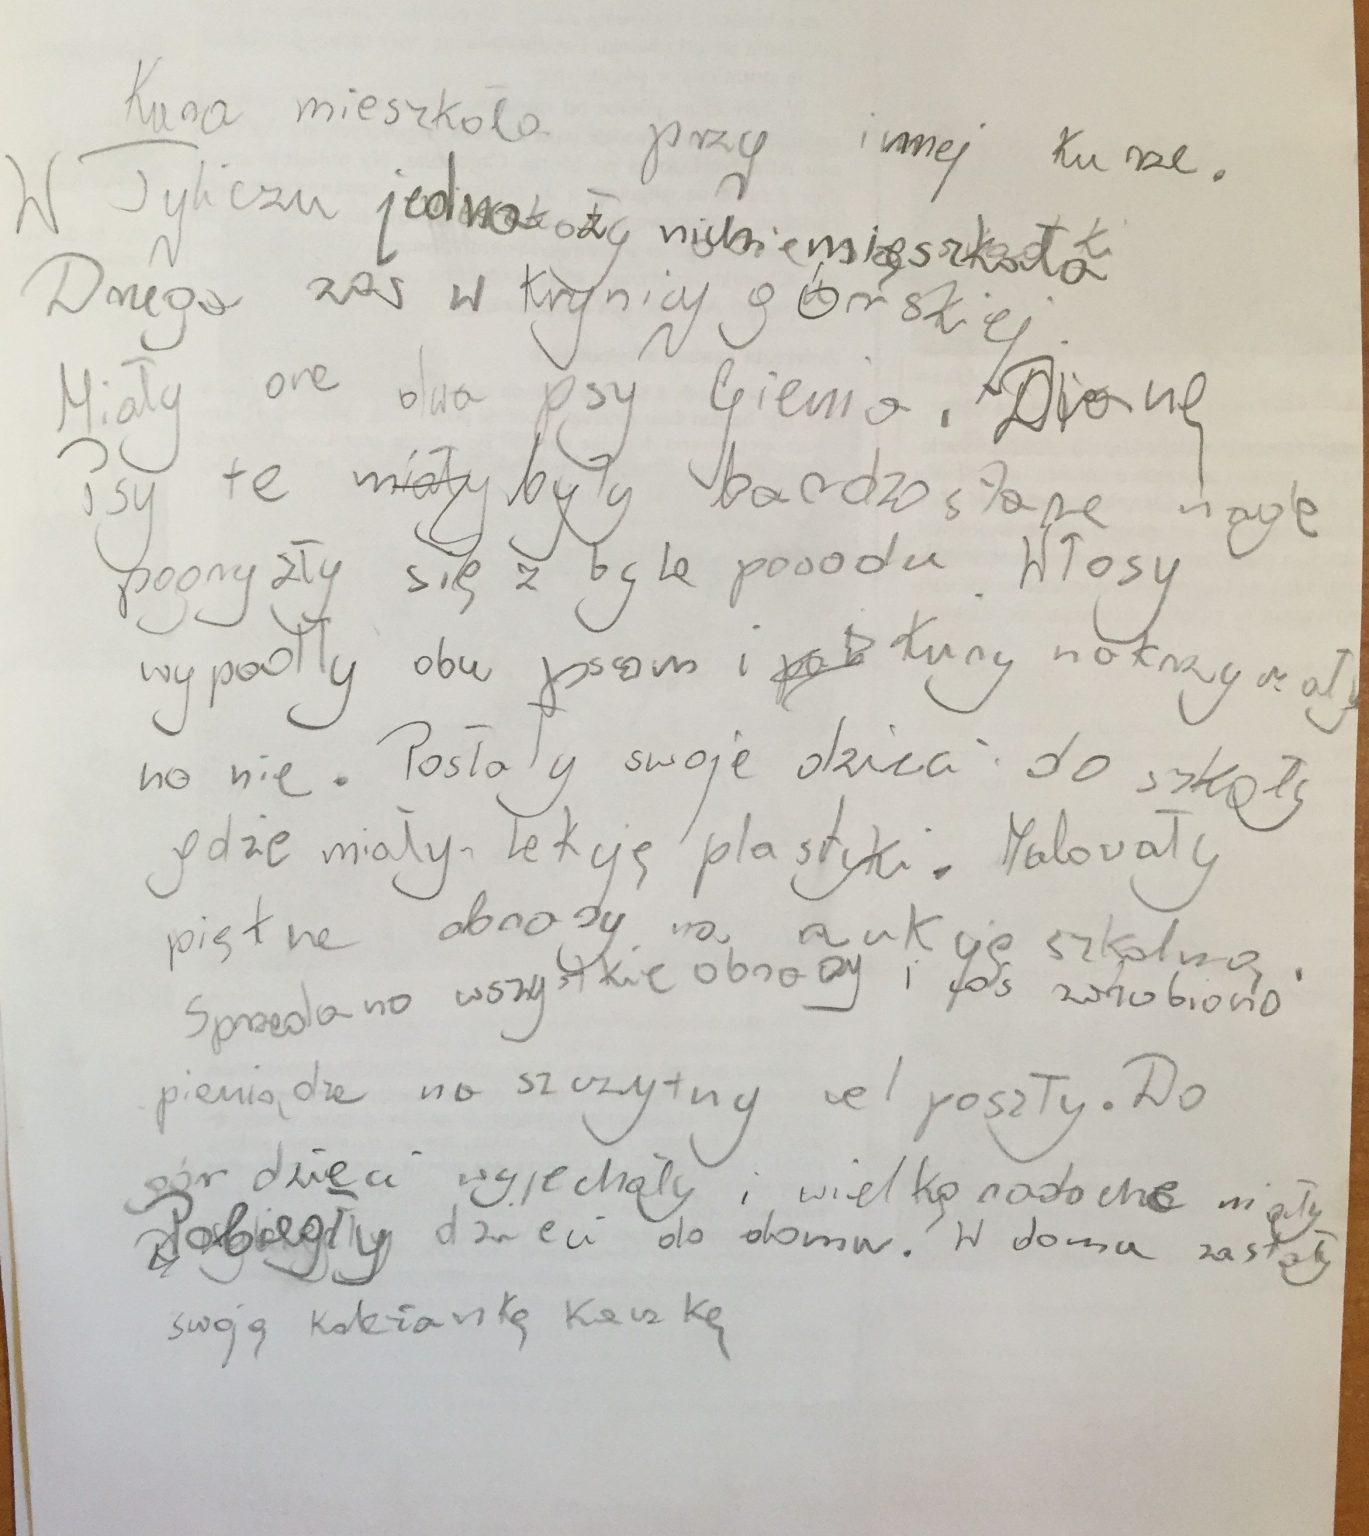 Kura mieszkała przy innej kurze.
W Tyliczu jedna
Druga zaś w Krynicy górskiej.
Miały one dwa psy Gienia, Dianę
Psy te miały były bardzo stare nagle
pogryzły się z byle powodu. Włosy
wypadły obu psom i kury nakrzyczały
na nie. Posłały swoje dzieci do szkoły
gdzie miały lekcję plastyki. Malowały
piękne obrazy na aukcję szkolną.
Sprzedano wszystkie obrazy i coś zarobiono
pieniądze na szczytny cel poszły. Do
gór dzieci wyjechały i wielką radochę miały
Pobiegły dzieci do domu. W domu zastały
swoją koleżankę Kaczkę